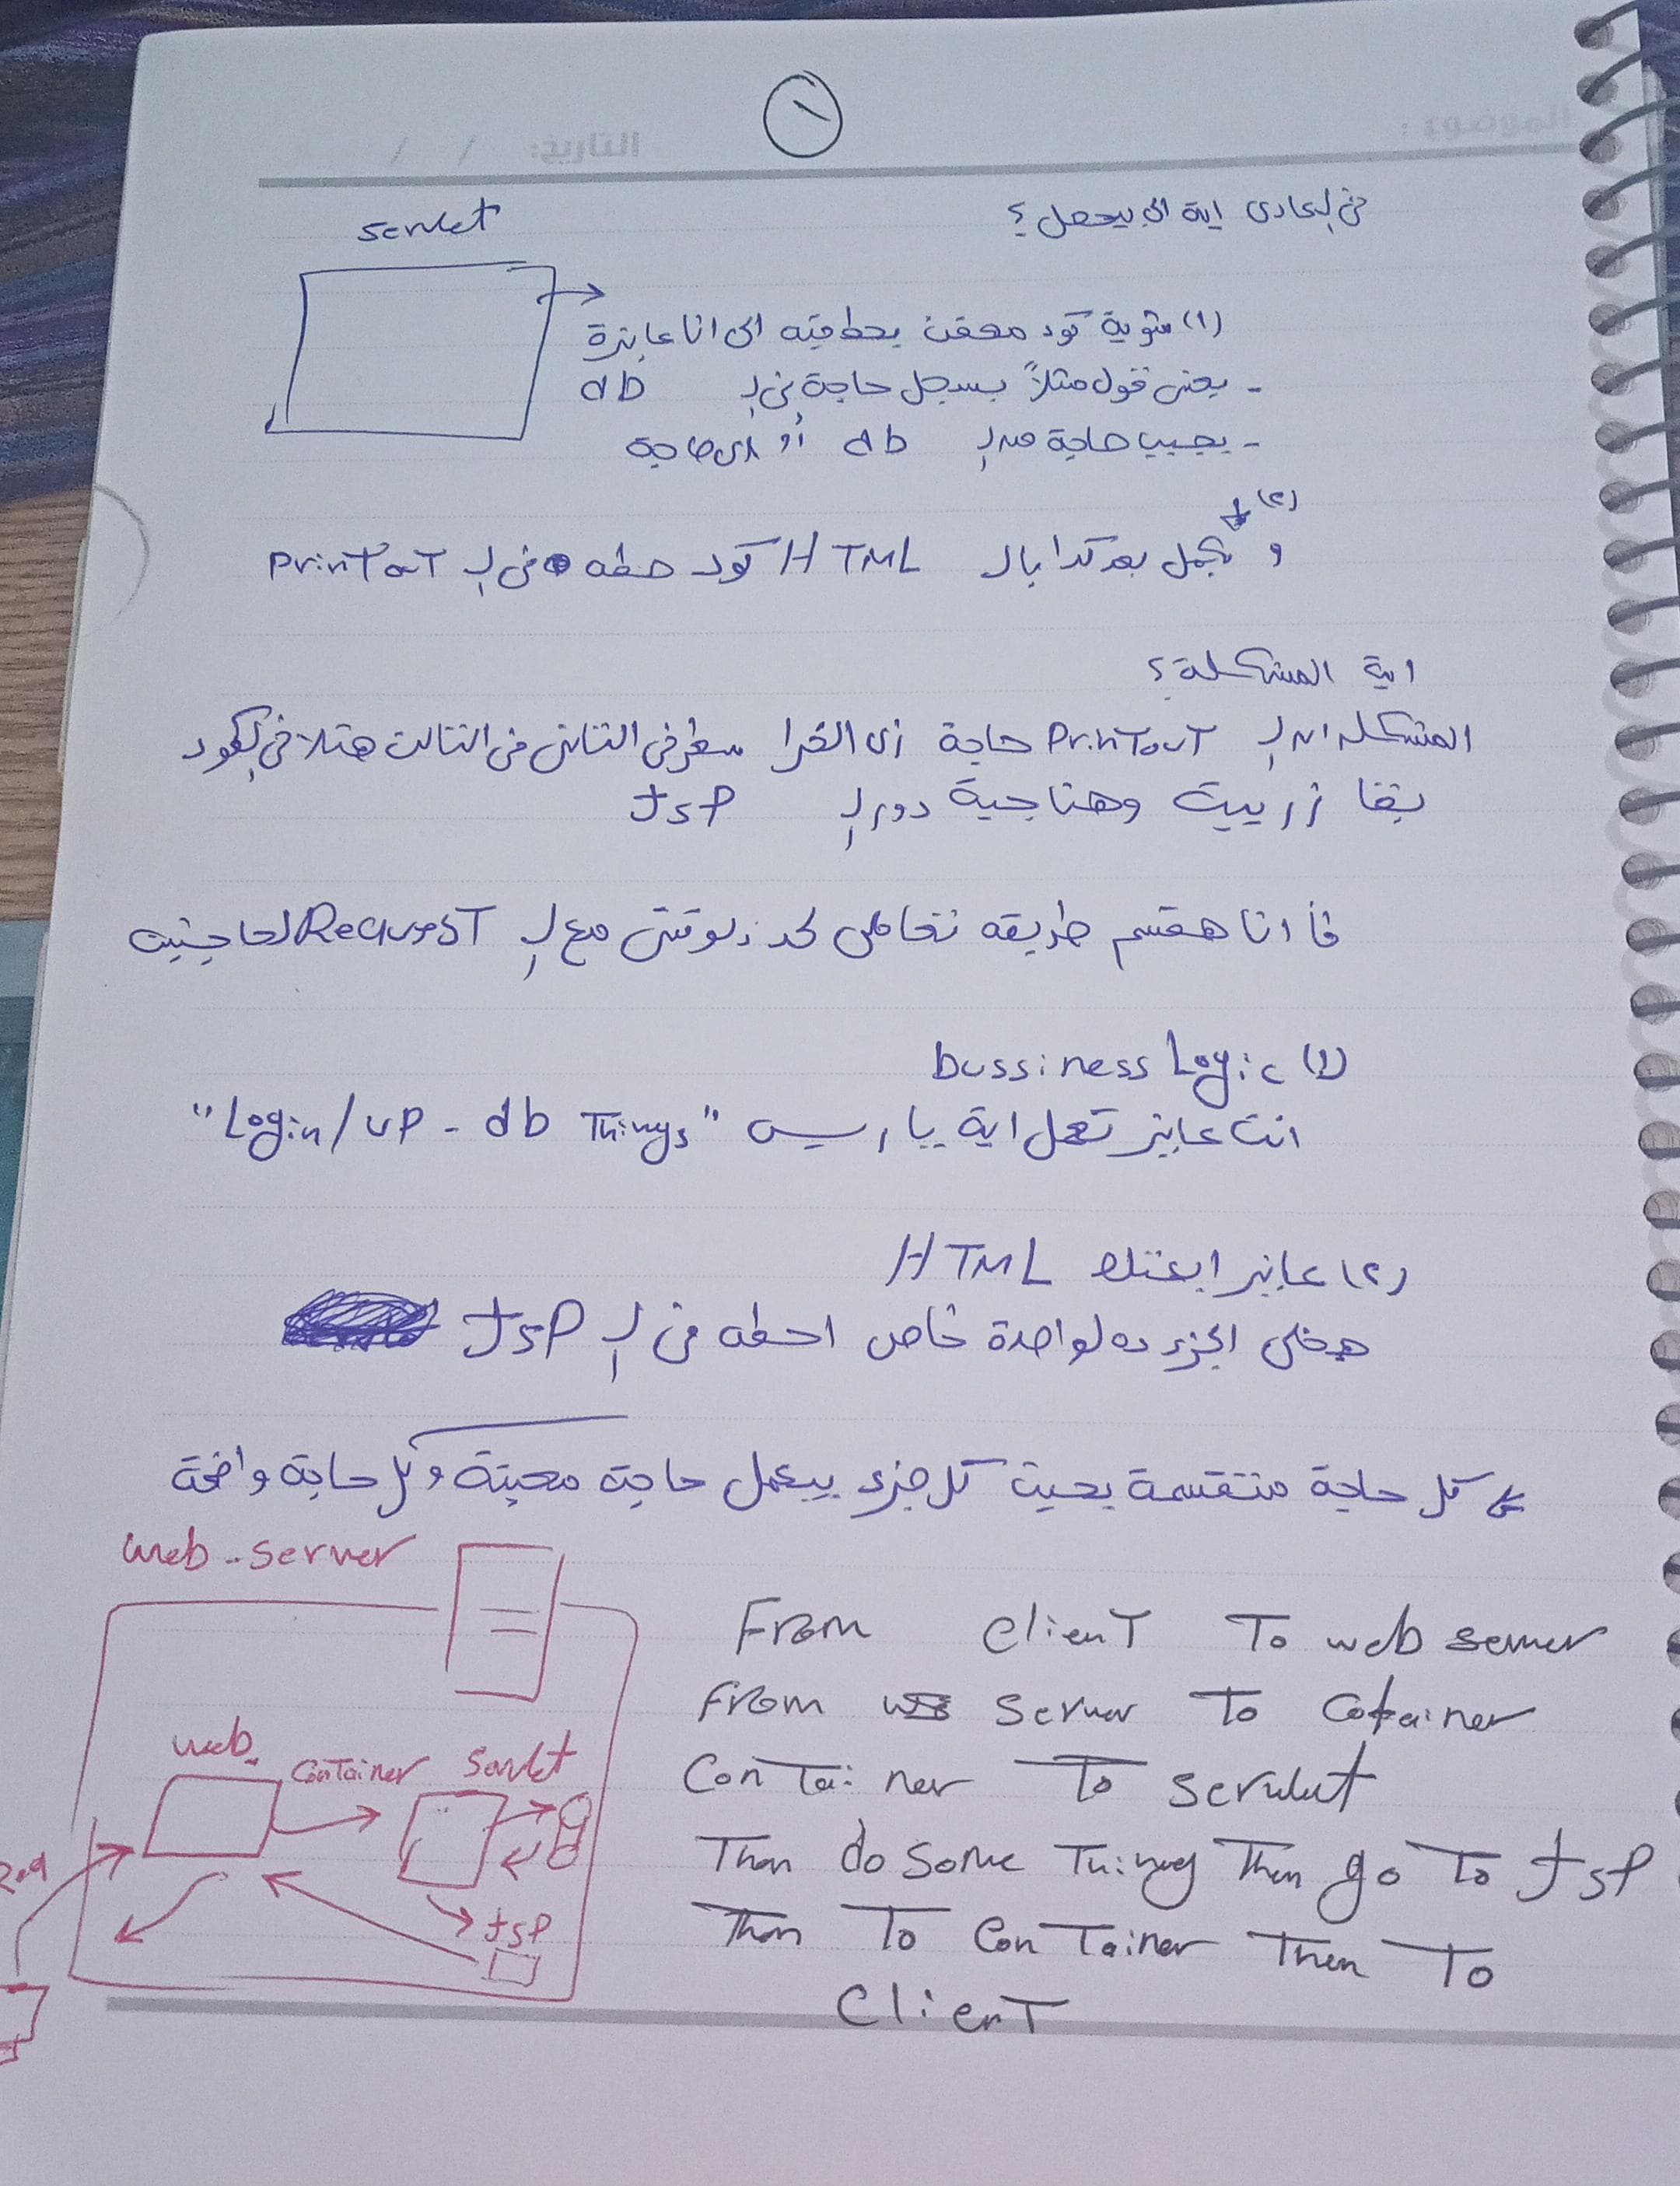 الموضوع :
التاريخ: / /
في العادى اية الى بيحصل ؟
servlet
(١) شوية كود معفن بحط فيه الى انا عايزة
- يعنى قول مثلاً بسجل حاجة فى ال db
- بجيب حاجة من ال db أو اى حاجة
(٢)
و بكمل بعد كدا بال HTML كود حطه فى ال PrintOut
اية المشكلة ؟
المشكله ان ال PrintOut حاجة زى الخرا سطر فى التانى فى التالت هتلا فى الكود
بقا زربيت وهنا جية دور ال JSP
فأ انا هقسم طريقه تعاملى لحد دلوقتى مع ال Request لما جيه
(1) bussiness Logic
انت عايز تعمل اية ياريس "Login/up - db Things"
(٢) عايز ابعتلك HTML
هخلى الجزء ده لواحدة خاص احطه فى ال JSP
كل حاجة متقسمة بحيث كل جزء بيعمل حاجة معينة وكل حاجة واضحة
web-server
web
container
Servlet
Req
JSP
From client To web server
From server To Cotainer
Container To servlet
Then do some Thing Then go To JSP
Then To Container Then To
Client